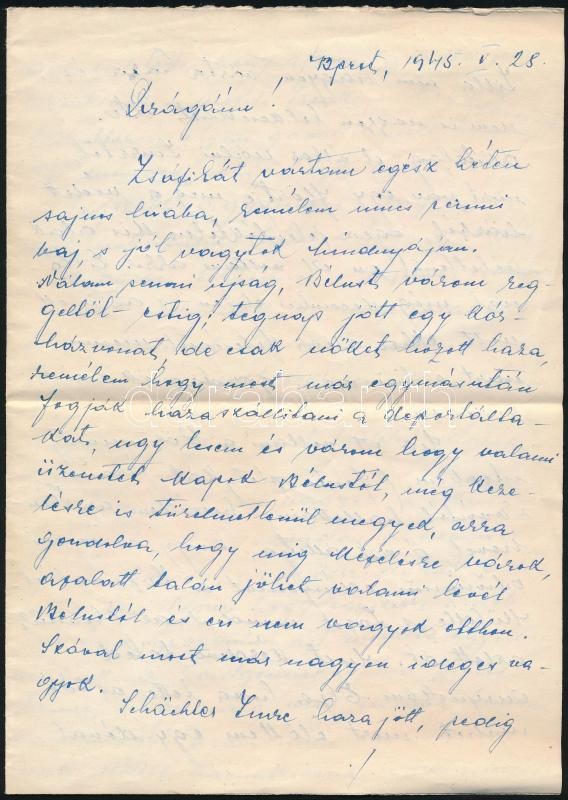 Bpest, 1945. V. 28.
Drágáim!
Zsófikát vártam egész héten
sajnos hiába, remélem nincs semmi
baj, s jól vagytok mindnyájan.
Nálam semmi ujság, Bélust várom reg-
geltől – estig; tegnap jött egy kór-
házvonat, de csak nőket hozott haza,
remélem hogy most már egymásután
fogják hazaszállitani a deportálta-
kat, ugy lesem és várom hogy valami
üzenetet kapok Bélustól, még keze-
lésre is türelmetlenül megyek, arra
gondolva, hogy mig kezelésre várok,
azalatt talán jöhet valami levél
Bélustól és én nem vagyok otthon.
Szóval most már nagyon ideges va-
gyok.
Schächter Imre hazajött, pedig
darabanth